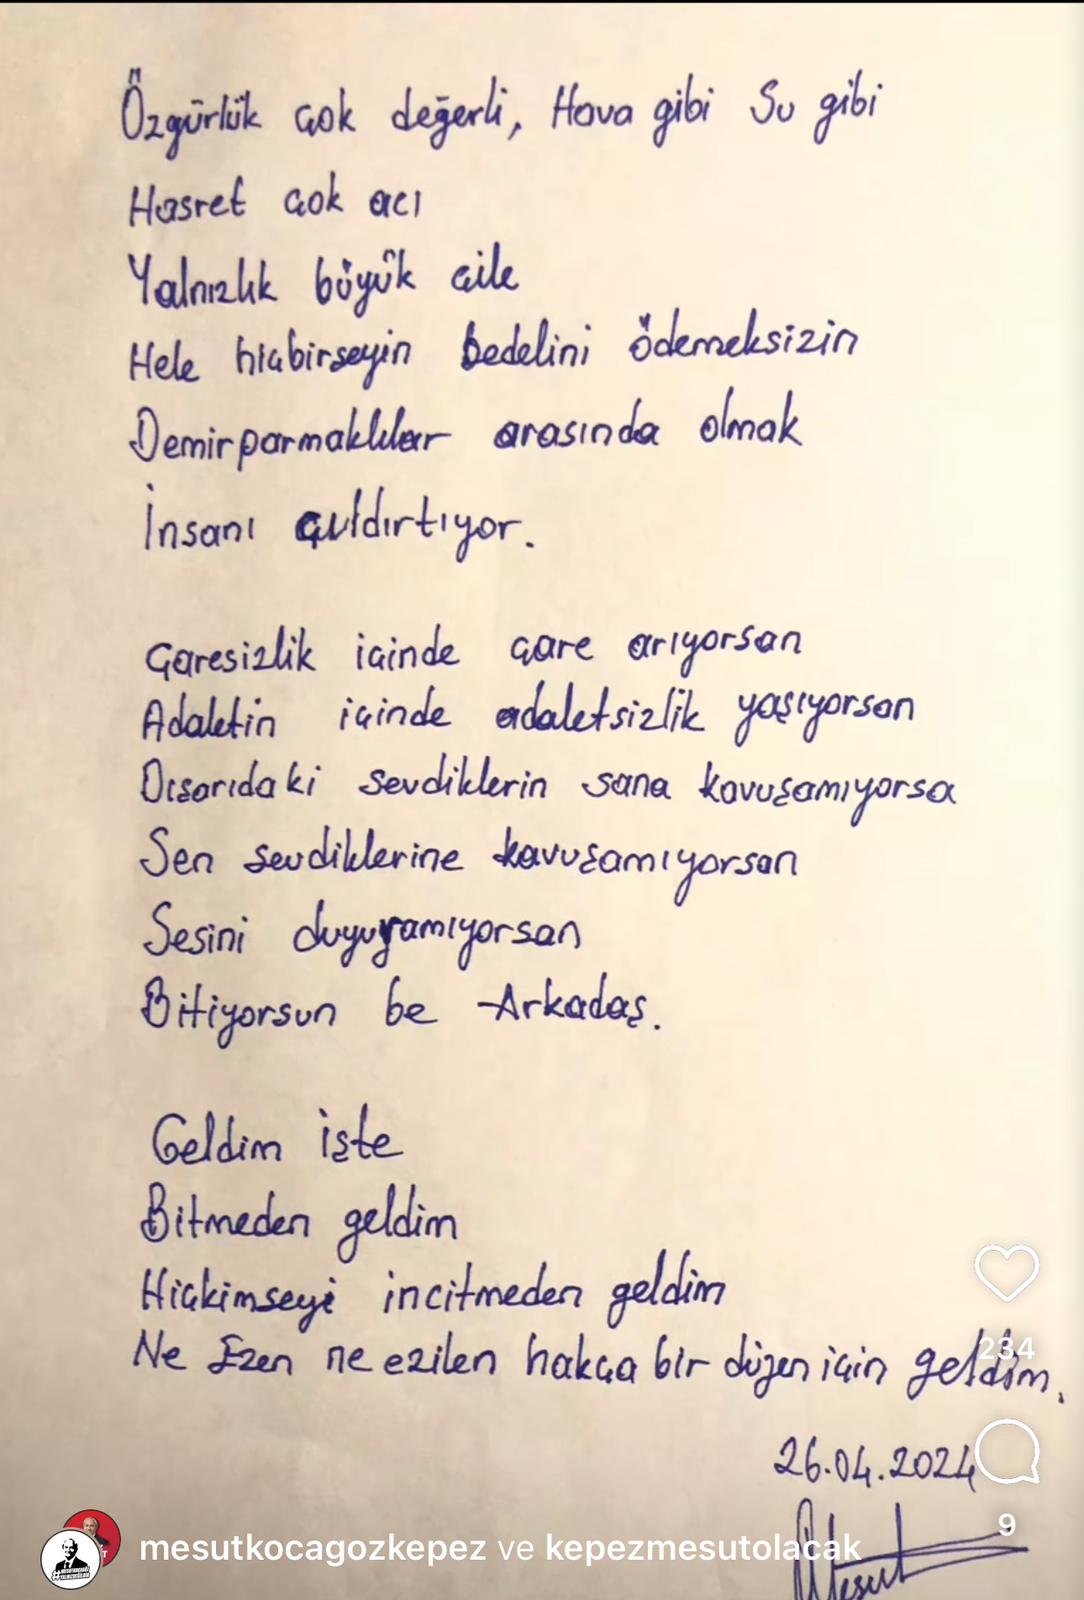 Özgürlük çok değerli, Hava gibi Su gibi
Hasret çok acı
Yalnızlık büyük çile
Hele hiçbirseyin bedelini ödemeksizin
Demirparmaklılar arasında olmak
İnsanı çıldırtıyor.
Çaresizlik içinde çare arıyorsan
Adaletin içinde adaletsizlik yaşıyorsan
Dısarıdaki sevdiklerin sana kavuşamıyorsa
Sen sevdiklerine kavuşamıyorsan
Sesini duyuramıyorsan
Bitiyorsun be Arkadaş.
Geldim işte
Bitmeden geldim
Hiçkimseyi incitmeden geldim
Ne Ezen ne ezilen hakça bir düzen için geldim.
234
26.04.2024
9
Mesut
mesutkocagozkepez ve kepezmesutolacak